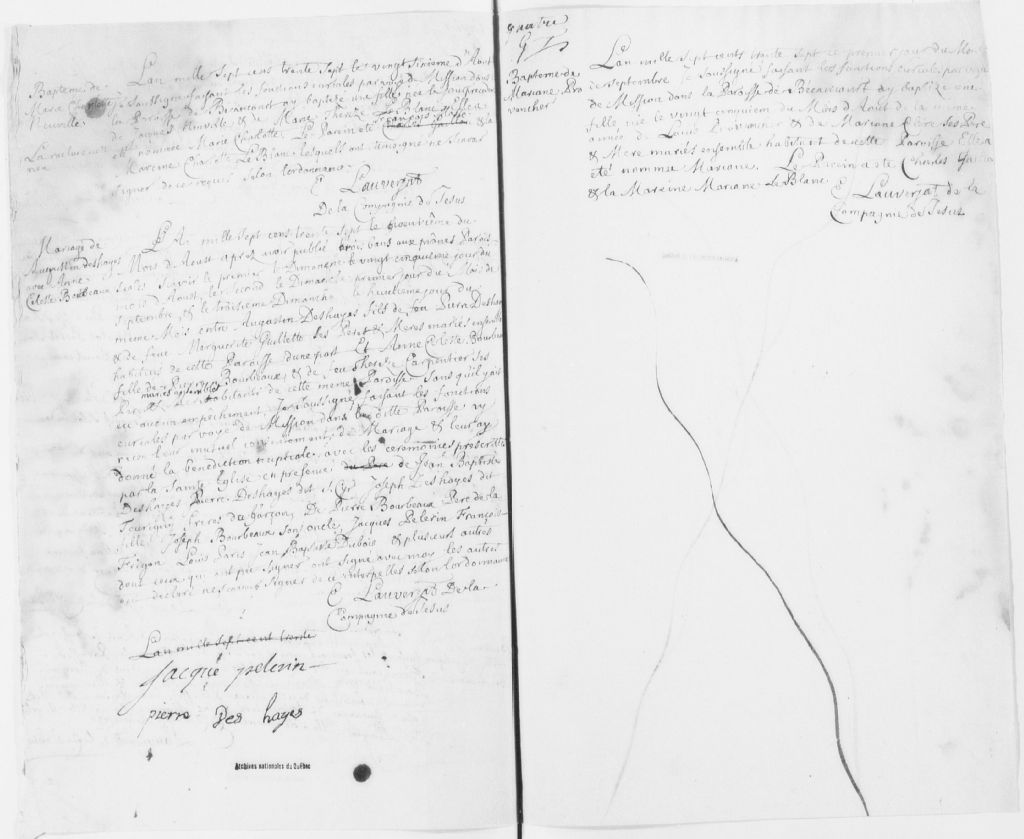 Bapteme de
Marie Charlotte
Neuville.
L'an mille sept cens trente sept le vingt sixieme d'Aout
Je soussigné faisant les fonctions curiales par voye de Mission dans
la Paroisse de Becancourt ay baptizé une fille née le jour precedent
Neuville & de Marie Therèze Le Blanc elle a
été nommée Marie Charlotte Le Parein eté & la
Mareine Charlotte Le Blanc lesquels ont temoigné ne sçavoir
signer de ce requis selon l'ordonnance
E Lauverjat
De la Compagnie de Jesus
Mariage de
Augustin deshayes
avec Anne
Celeste Bourbeaux
L'An mille sept cens trente sept le
Mois de Aoust apres avoir publié trois bans aux prones Parois-
siales sçavoir le premier le Dimanche le vingt cinquieme jour du
mois d'Aoust, le second le Dimanche premier jour du Mois de
septembre, & le troisieme Dimanche le huitieme jour du
meme Mois entre Augustin Deshayes fils de feu Deshayes
& de feue Marguerite Guillette ses Pere & Meres mariés ensemble
habitans de cette Paroisse d'une part Et Anne Celeste Bourbeaux
fille de Pierre Bourbeaux, & de feu Therèze Carpentier ses
mariés ensemble
habitants de cette meme Paroisse sans qu'il y ait
eu aucun empêchement, Je soussigné faisant les fonctions
curiales par voye de Mission dans la ditte Paroisse ay
receu leur mutuel consentement de Mariage & leur ay
donné la benediction nuptiale avec les ceremonies prescrittes
par la Sainte Eglise en presence du Pere de Jean Baptiste
Deshayes Pierre Deshayes dit St. Cyr Joseph Deshayes dit
Tourigny freres du garçon, De Pierre Bourbeaux Pere de la
fille Joseph Bourbeaux son oncle, Jacques Pelerin François
Frigon Louis Paris Jean Baptiste Dubois & plusieurs autres
dont ceux qui ont pû signer ont signé avec moy les autres
ont declaré ne sçavoir signer de ce interpellés selon l'ordonnance
E Lauverjat De la
Compagnie de Jesus
L'an mille sept cent trente
jacque pelerin
pierre Des hayes
Archives nationales du Québec
quatre
Bapteme de
Mariane Pro
vencher
L'an mille sept cents trente sept ce premier jour du Mois
de septembre je soussigné faisant les functions curiales par voye
de Mission dans la Paroisse de Becancourt ay baptizé une
fille née le vingt du Mois d'Aout de la meme
année de Louis Provencher & de Mariane Clère ses Pere
& Mere mariés ensemble habitant de cette Paroisse Elle a
été nommé Mariane. Le Parein a été Charles
& la Mareine Mariane Le Blanc
E Lauverjat de la
Compagnie de Jesus